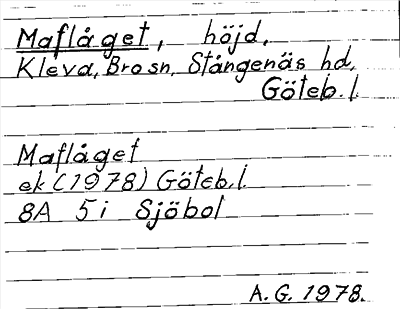 Maflåget, höjd,
Kleva, Bro sn, Stångenäs hd,
Göteb. l.
Maflåget
ek (1978) Göteb. l
8A 5i Sjöbol
A.G. 1978.